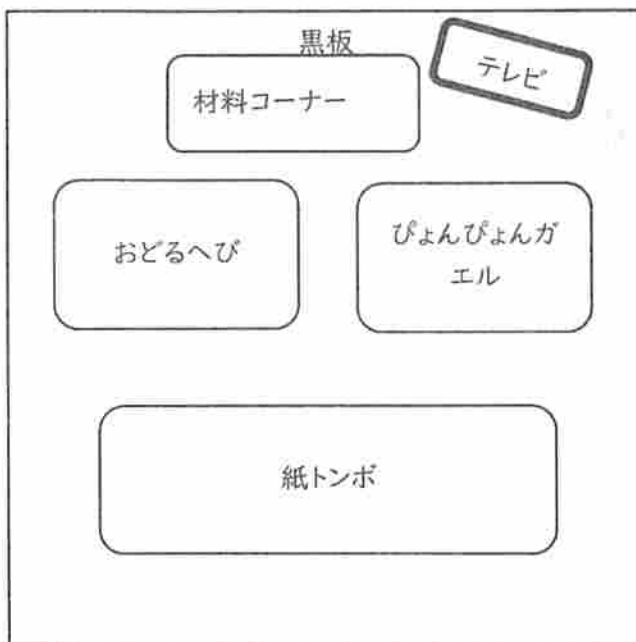 黒板
テレビ
材料コーナー
おどるへび
ぴょんぴょんガ
エル
紙トンボ